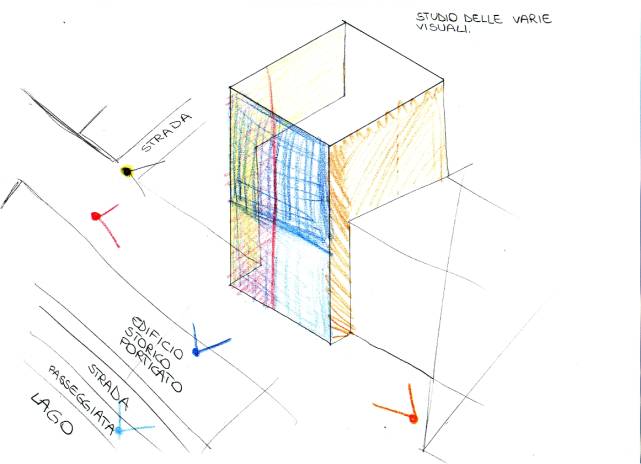 STUDIO DELLE VARIE
VISUALI.
STRADA
EDIFICIO
STORICO
PORTICATO
STRADA
PASSEGGIATA
LAGO